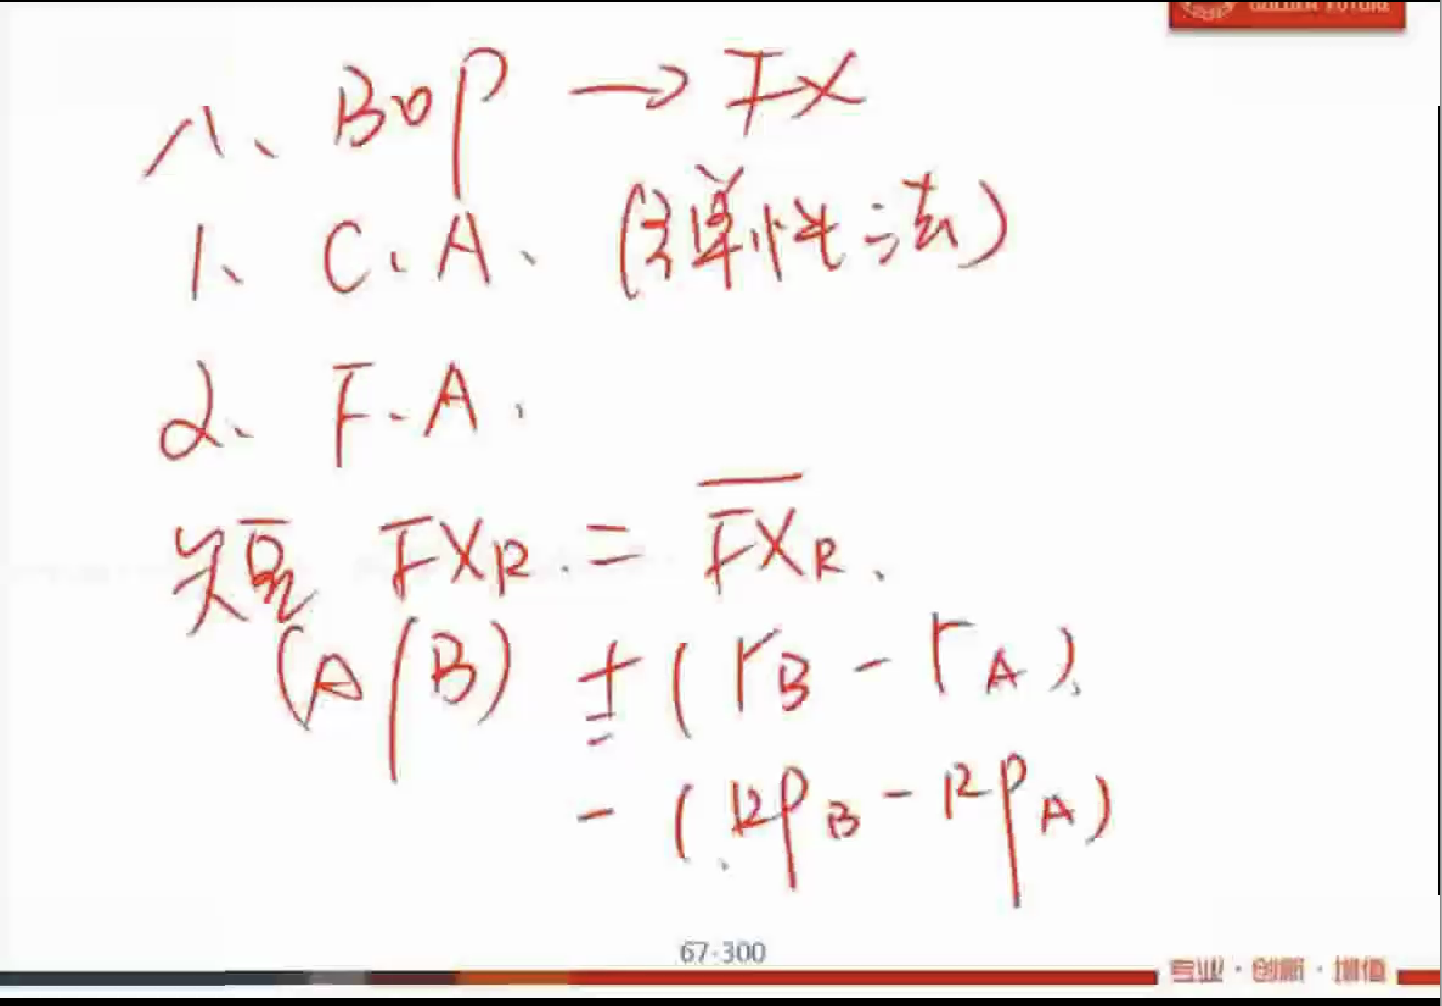 GOLDEN FUTURE
八、BOP → FX
1、C.A. (弹性法)
2、F.A.
短 FXR. = F̅X̅R.
(A/B) ± (rB - rA).
- (RPB - RPA)
67-300
专业·创新·增值